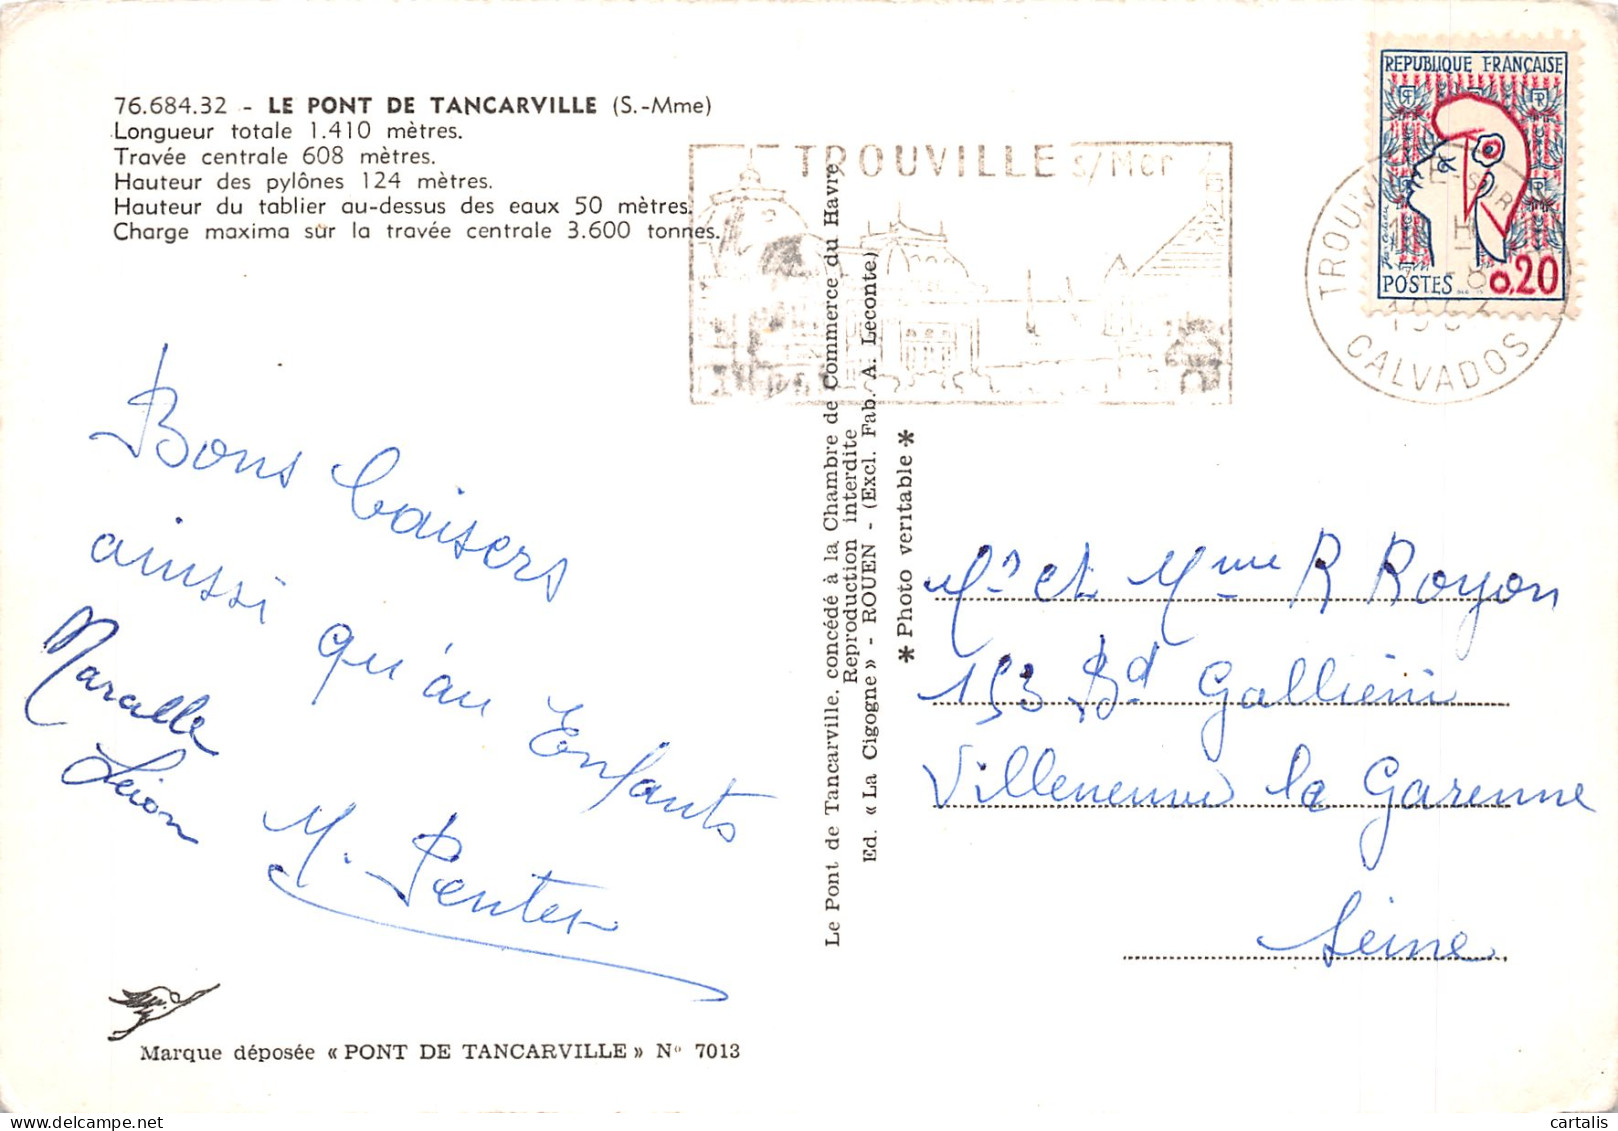 76.684.32 - LE PONT DE TANCARVILLE (S.-Mme)
Longueur totale 1.410 mètres.
Travée centrale 608 mètres.
Hauteur des pylônes 124 mètres.
Hauteur du tablier au-dessus des eaux 50 mètres.
Charge maxima sur la travée centrale 3.600 tonnes.
Bons baisers
ainssi
qu'au
Enfants
Marcelle
Léion
M. Penter
Marque déposée « PONT DE TANCARVILLE » N° 7013
Le Pont de Tancarville, concédé à la Chambre de Commerce du Havre
Reproduction interdite
Ed. « La Cigogne » - ROUEN - (Excl. Fab. A. Leconte)
* Photo véritable *
TROUVILLE s/Mer
REPUBLIQUE FRANÇAISE
POSTES 0,20
CALVADOS
Mr et Mme R Royon
153 Bd Galliéni
Villeneuve la Garenne
Seine
cartalis | delcampe.net